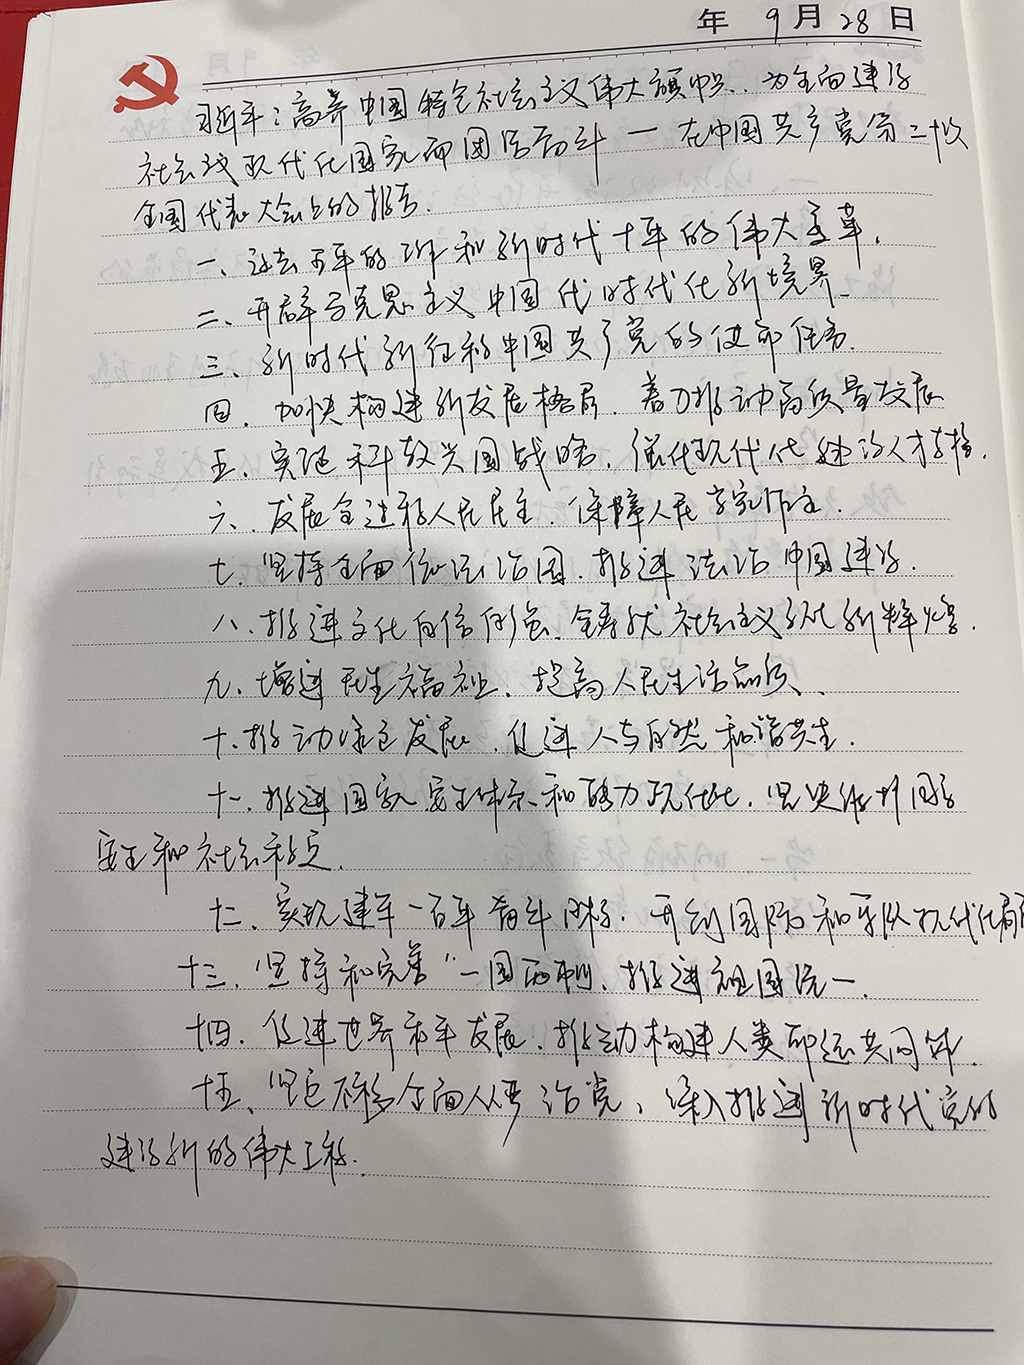 年 9月28日
习近平：高举中国特色社会主义伟大旗帜、为全面建设
社会主义现代化国家而团结奋斗 — 在中国共产党第二十次
全国代表大会上的报告.
一、过去五年的工作和新时代十年的伟大变革.
二、开辟马克思主义中国代时代化新境界.
三、新时代新征程中国共产党的使命任务.
四、加快构建新发展格局，着力推动高质量发展
五、实施科教兴国战略，强化现代化建设人才支撑.
六、发展全过程人民民主，保障人民当家作主.
七、坚持全面依法治国，推进法治中国建设.
八、推进文化自信自强、铸就社会主义文化新辉煌.
九、增进民生福祉、提高人民生活品质、
十、推动绿色发展，促进人与自然和谐共生.
十一、推进国家安全体系和能力现代化，坚决维护国家
安全和社会稳定.
十二、实现建军一百年奋斗目标，开创国防和军队现代化新局面
十三、坚持和完善“一国两制，推进祖国统一.
十四、促进世界和平发展，推动构建人类命运共同体.
十五、坚定不移全面从严治党，深入推进新时代党的
建设新的伟大工程.